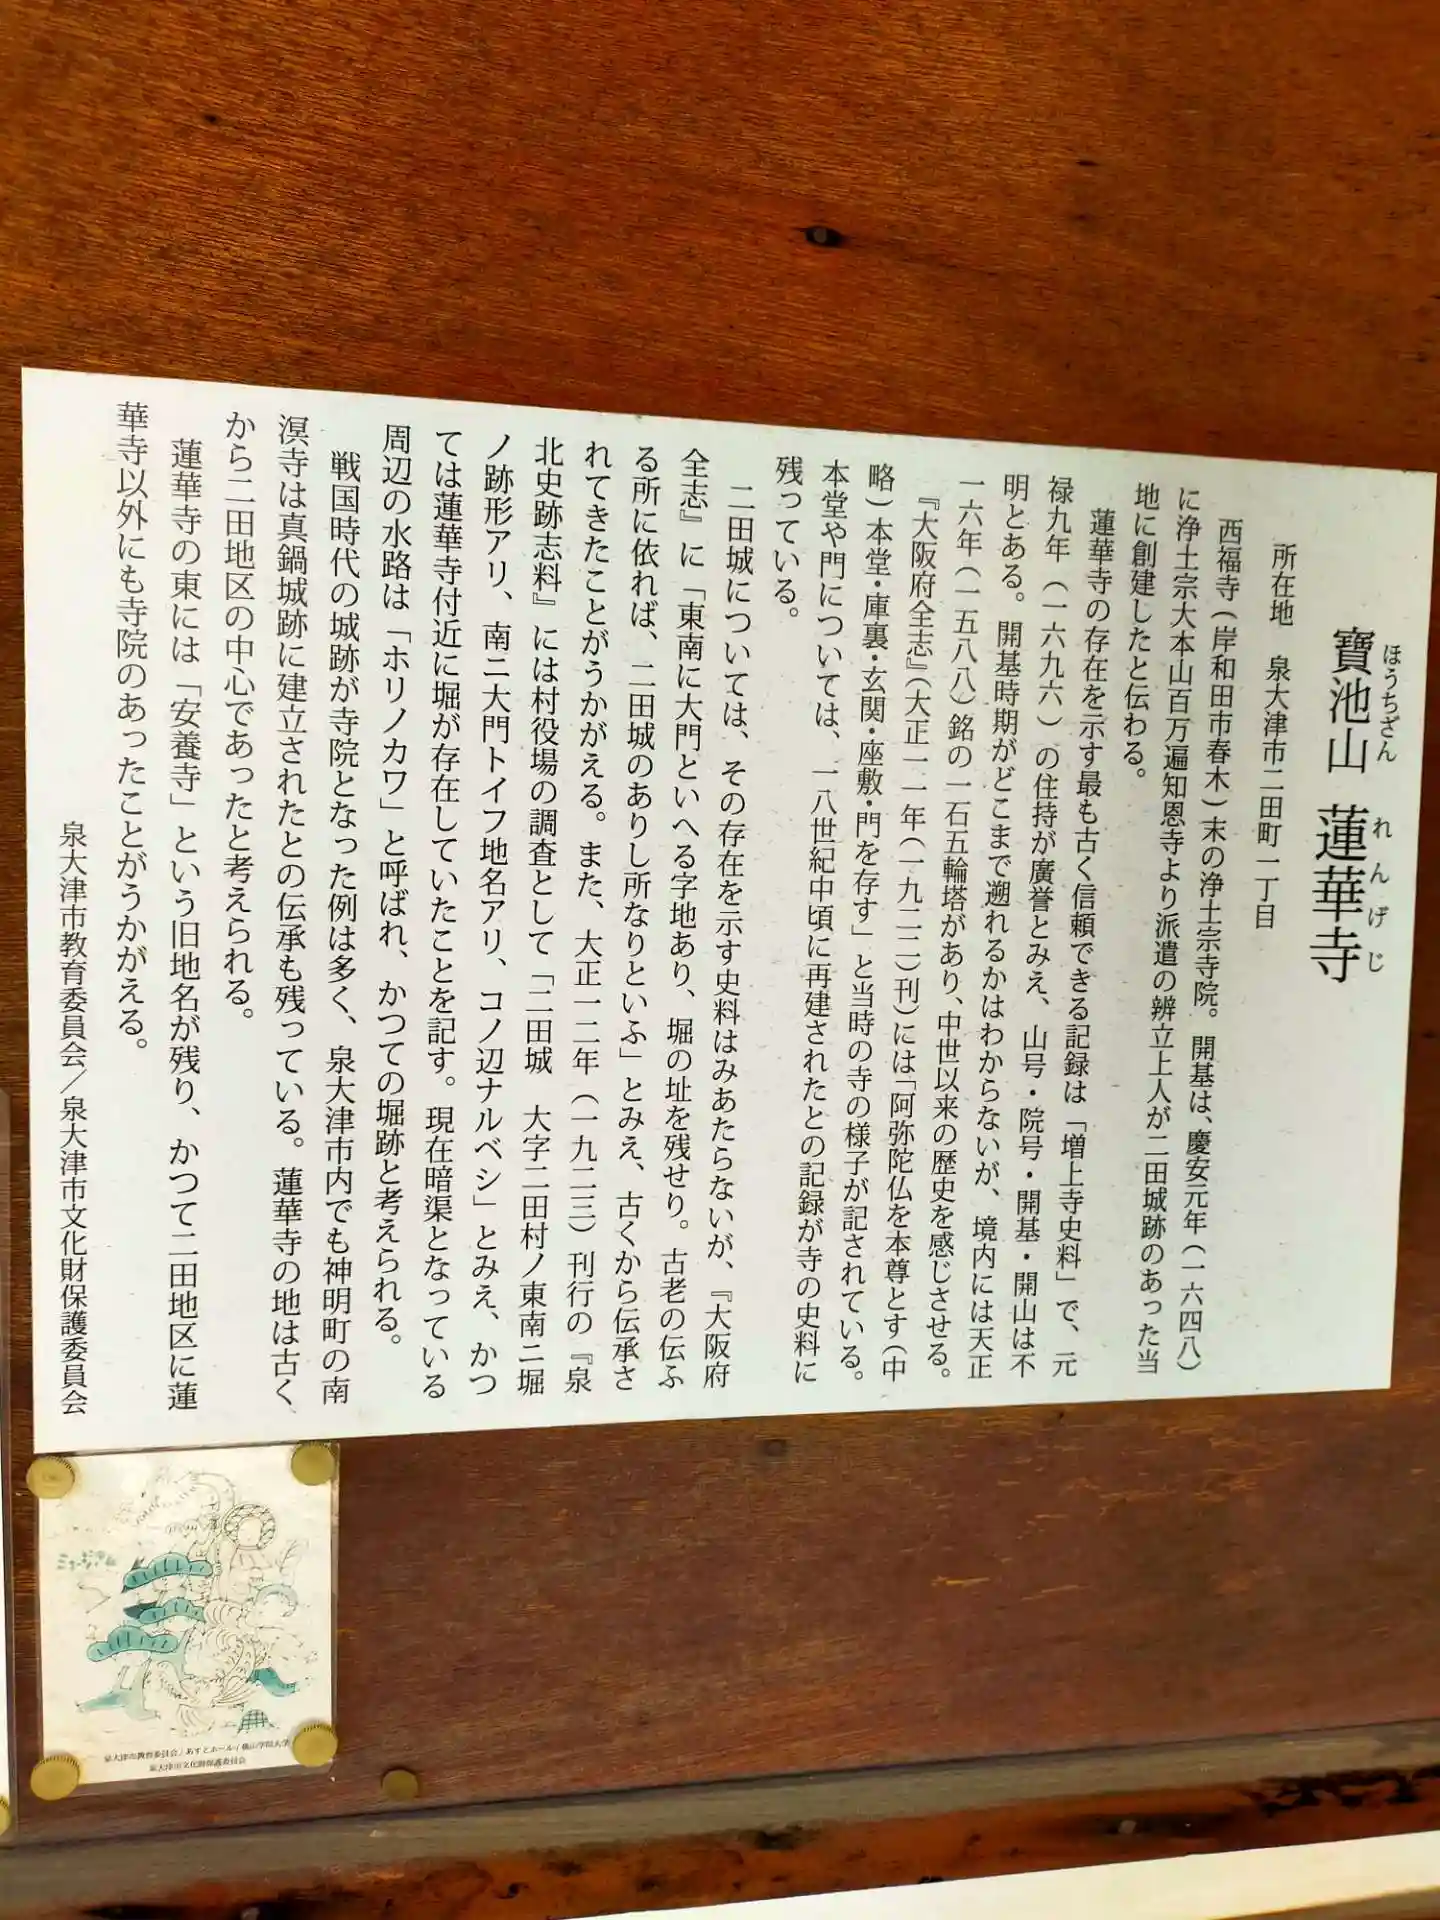 寶池山 蓮華寺
ほうちざん れんげじ
所在地 泉大津市二田町一丁目
西福寺(岸和田市春木)末の浄土宗寺院。開基は、慶安元年(一六四八)
に浄土宗大本山百万遍知恩寺より派遣の辨立上人が二田城跡のあった当
地に創建したと伝わる。
蓮華寺の存在を示す最も古く信頼できる記録は「増上寺史料」で、元
禄九年(一六九六)の住持が廣誉とみえ、山号・院号・開基・開山は不
明とある。開基時期がどこまで遡れるかはわからないが、境内には天正
一六年(一五八八)銘の一石五輪塔があり、中世以来の歴史を感じさせる。
『大阪府全志』(大正一一年(一九二二)刊)には「阿弥陀仏を本尊とす(中
略)本堂・庫裏・玄関・座敷・門を存す」と当時の寺の様子が記されている。
本堂や門については、一八世紀中頃に再建されたとの記録が寺の史料に
残っている。
二田城については、その存在を示す史料はみあたらないが、『大阪府
全志』に「東南に大門といへる字地あり、堀の址を残せり。古老の伝ふ
る所に依れば、二田城のありし所なりといふ」とみえ、古くから伝承さ
れてきたことがうかがえる。また、大正一二年(一九二三)刊行の『泉
北史跡志料』には村役場の調査として「二田城 大字二田村ノ東南ニ堀
ノ跡形アリ、南ニ大門トイフ地名アリ、コノ辺ナルベシ」とみえ、かつ
ては蓮華寺付近に堀が存在していたことを記す。現在暗渠となっている
周辺の水路は「ホリノカワ」と呼ばれ、かつての堀跡と考えられる。
戦国時代の城跡が寺院となった例は多く、泉大津市内でも神明町の南
溟寺は真鍋城跡に建立されたとの伝承も残っている。蓮華寺の地は古く
から二田地区の中心であったと考えられる。
蓮華寺の東には「安養寺」という旧地名が残り、かつて二田地区に蓮
華寺以外にも寺院のあったことがうかがえる。
泉大津市教育委員会／泉大津市文化財保護委員会
ミュージアム
泉大津市教育委員会 / あすとホール / 桃山学院大学
泉大津市文化財保護委員会